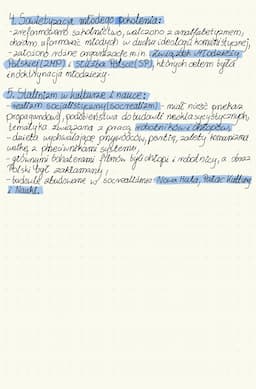 4. Sowietyzacja młodego pokolenia:
- zreformowano szkolnictwo, walczono z analfabetyzmem,
chciano uformować młodych w duchu ideologii komunistycznej,
- założono różne organizacje m.in. Związek Młodzieży
Polskiej (ZMP) i Służba Polsce (SP), których celem była
indoktrynacja młodzieży.
5. Stalinizm w kulturze i nauce:
- realizm socjalistyczny (socrealizm) - miał nieść przekaz
propagandowy, podobieństwa do budowli neoklasycystycznych,
tematyka związana z pracą robotników i chłopów,
- dzieła wychwalające przywódców, partię, zalety komunizmu
walkę z przeciwnikami systemu,
- głównymi bohaterami filmów byli chłopi i robotnicy, a obraz
Polski był zakłamany,
- budowle zbudowane w socrealizmie: Nowa Huta, Pałac Kultury
i Nauki.